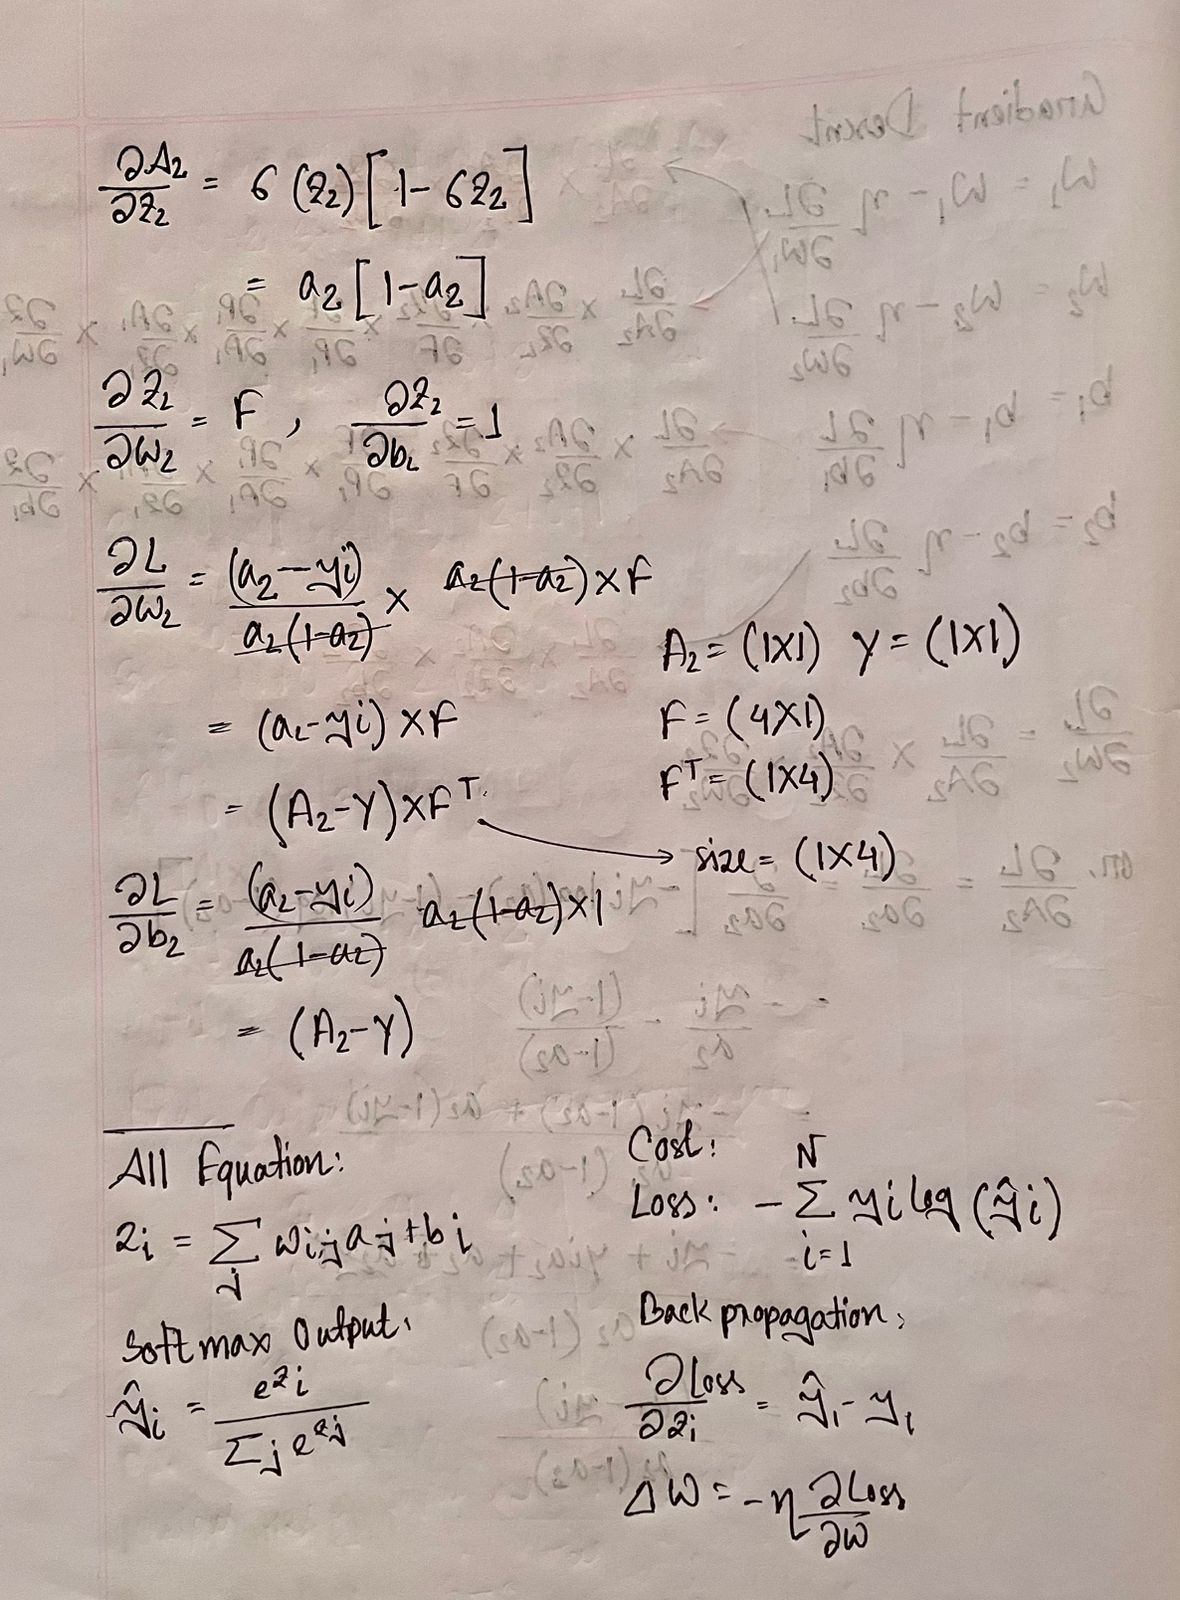 ∂A₂/∂z₂ = σ(z₂)[1-σz₂]
= a₂[1-a₂]
∂z₂/∂w₂ = F, ∂z₂/∂b₂ = 1
∂L/∂w₂ = (a₂-yi)/a₂(1-a₂) × a₂(1-a₂)×F
A₂ = (1×1) Y = (1×1)
= (a₂-yi)×F
F = (4×1)
Fᵀ = (1×4)
= (A₂-Y)×Fᵀ.
→ size = (1×4)
∂L/∂b₂ = (a₂-yi)/a₂(1-a₂) a₂(1-a₂)×1
= (A₂-Y)
All Equation:
zi = Σj wij aj+bi
Softmax Output,
ŷi = e^zi/Σj e^zj
Cost:
Loss: -Σ(i=1 to N) yi log (ŷi)
Back propagation,
∂Loss/∂zi = ŷi - yi
ΔW = -η ∂Loss/∂w